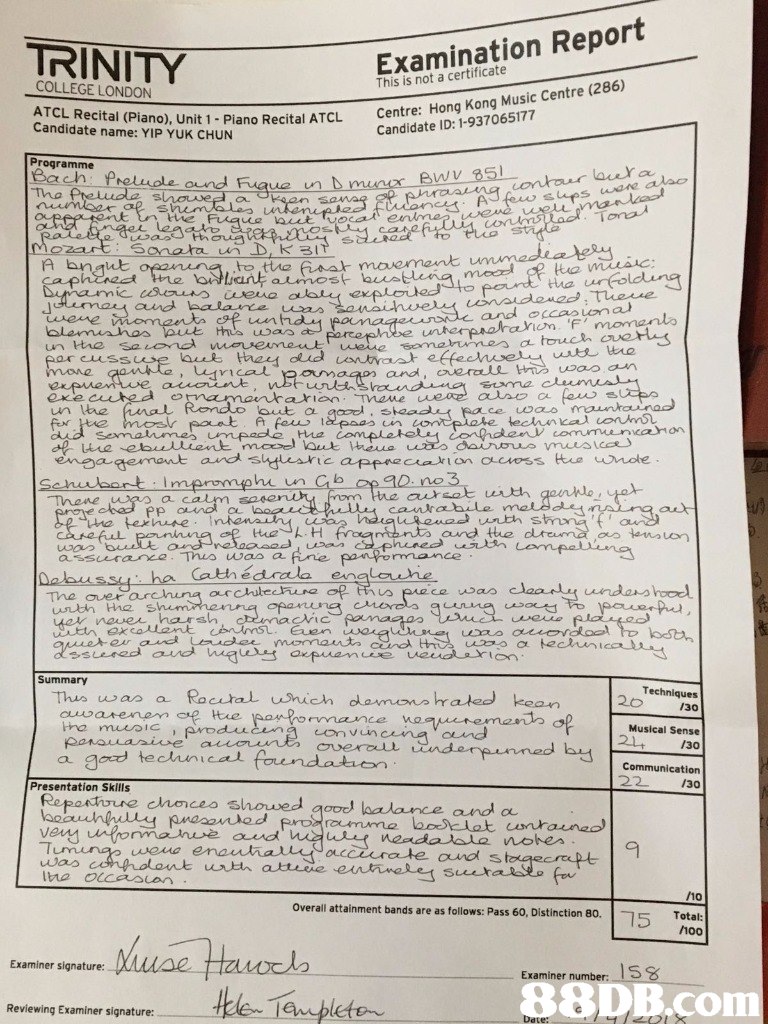 TRINITY
COLLEGE LONDON
Examination Report
This is not a certificate
ATCL Recital (Piano), Unit 1 - Piano Recital ATCL
Candidate name: YIP YUK CHUN
Centre: Hong Kong Music Centre (286)
Candidate ID: 1-937065177
Programme
Bach: Prelude and Fugue in D minor BWV 851
The Prelude showed a keen sense of phrasing contour but a
number of stumbles interrupted fluency. A few slips were also
apparent in the Fugue but vocal entries were well marked
and finger legato mostly carefully controlled. Tonal
palette was thoughtfully suited to the style
Mozart: Sonata in D, K 311
A bright opening to the first movement immediately
captured the brilliant, almost bustling mood of the music:
Dynamic colours were ably exploited to paint the unfolding
journey and balance was sensitively considered. There
were moments of untidy passagework and occasional
blemishes but this was a perceptive interpretation. 'F' moments
in the second movement were sometimes a touch overtly
percussive but they did contrast effectively with the
more gentle, lyrical passages and, overall this was an
expressive account, notwithstanding some clumsily
executed ornamentation. There were also a few slips
in the final Rondo but a good, steady pace was maintained
for the most part. A few lapses in complete technical control
did sometimes impede the completely confident communication
of the ebullient mood but there was obvious musical
engagement and stylistic appreciation across the whole.
Schubert: Impromptu in Gb op 90. no 3
There was a calm serenity from the outset with gentle, yet
projected pp and a beautifully cantabile melody rising out
of the texture. Intensity was heightened with strong 'f' and
careful pointing of the L.H fragments and the drama, as tension
was built and released, was captured with compelling
assurance. This was a fine performance.
Debussy: La Cathédrale engloutie
The over arching architecture of this piece was clearly understood
with the shimmering opening chords giving way to powerful,
yet never harsh, climactic passages which were played
with excellent control. Even weighting was accorded to both
quieter and louder moments and this was a technically
assured and highly expressive rendition.
Summary
This was a Recital which demonstrated keen
awareness of the performance requirements of
the music, producing convincing and
persuasive accounts overall underpinned by
a good technical foundation.
Techniques
20 /30
Musical Sense
24 /30
Communication
22 /30
Presentation Skills
Repertoire choices showed good balance and a
beautifully presented programme booklet contained
very informative and highly readable notes.
Timings were essentially accurate and stagecraft
was confident with attire entirely suitable for
the occasion.
9
/10
Overall attainment bands are as follows: Pass 60, Distinction 80.
75 Total:
/100
Examiner signature:
Examiner number: 158
Reviewing Examiner signature: Helen Templeton
Date:
88DB.com